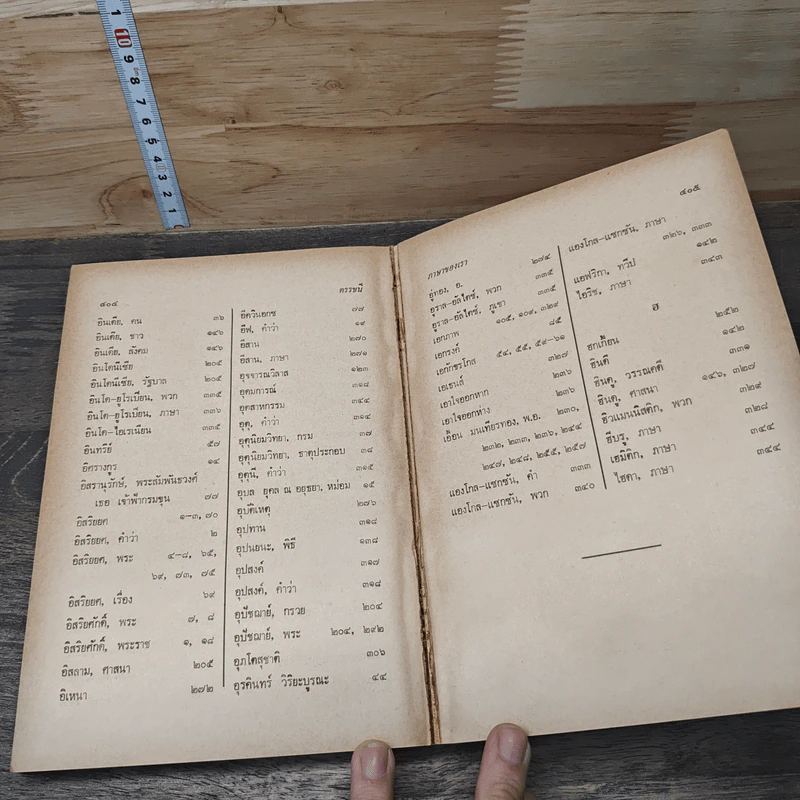 1
10
9
8
7
6
5
4
3
2
1
๔๐๔
ดรรชนี
อินเดีย, คน ๓๖
อินเดีย, ชาว ๑๔๖
อินเดีย, สังคม ๑๔๖
อินโดนีเซีย ๒๐๕
อินโดนีเซีย, รัฐบาล ๒๐๕
อินโด–ยูโรเปียน, พวก ๓๓๕
อินโด–ยูโรเปียน, ภาษา ๓๓๖
อินโด–ไอเรเนียน ๓๓๕
อินทรีย์ ๕๗
อิศรางกูร ๑๔
อิสรานุรักษ์, พระสัมพันธวงศ์
เธอ เจ้าฟ้ากรมขุน ๗๗
อิสริยยศ ๑–๓, ๗๐
อิสริยยศ, คำว่า ๒
อิสริยยศ, พระ ๔–๘, ๖๕,
๖๙, ๗๓, ๗๕
อิสริยยศ, เรื่อง ๖๙
อิสริยศักดิ์, พระ ๗, ๘
อิสริยศักดิ์, พระราช ๑, ๑๘
อิสลาม, ศาสนา ๒๐๕
อิเหนา ๒๗๒
อีควินอกซ ๗๗
อีฟ, คำว่า ๑๙
อีสาน ๒๗๐
อีสาน, ภาษา ๒๗๑
อุจจารณวิลาส ๑๒๓
อุดมการณ์ ๓๑๘
อุตสาหกรรม ๓๔๔
อุตุ, คำว่า ๓๑๔
อุตุนิยมวิทยา, กรม ๓๗
อุตุนิยมวิทยา, ธาตุประกอบ ๓๘
อุตุนี, คำว่า ๓๑๕
อุบล ยุคล ณ อยุธยา, หม่อม ๑๕
อุบัติเหตุ ๒๗๖
อุปทาน ๓๑๘
อุปนยนะ, พิธี ๑๓๘
อุปสงค์ ๓๑๗
อุปสงค์, คำว่า ๓๑๘
อุปัชฌาย์, กรวย ๒๐๔
อุปัชฌาย์, พระ ๒๐๔, ๒๙๒
อุภโตสุชาติ ๓๐๖
อุรคินทร์ วิริยะบูรณะ ๔๔
ภาษาของเรา
๔๐๕
อู่ทอง, อ. ๒๗๔
อูราล–อัลไตซ์, พวก ๓๓๕
อูราล–อัลไตซ์, ภูเขา ๓๓๕
เอกภาพ ๑๐๕, ๑๐๙, ๓๒๙
เอกรงค์ ๘๕
เอกักขรโกส ๕๔, ๕๕, ๕๙–๖๑
เอเธนส์ ๓๒๗
เอาใจออกหาก ๒๓๖
เอาใจออกห่าง ๒๓๖
เอื้อน มนเทียรทอง, พ.อ. ๒๓๐,
๒๓๒, ๒๓๓, ๒๓๖, ๒๔๔
๒๔๗, ๒๔๘, ๒๕๕, ๒๕๗
แองโกล–แซกซัน, คำ ๓๓๓
แองโกล–แซกซัน, พวก ๓๔๐
แองโกล–แซกซัน, ภาษา
๓๒๖, ๓๓๓
แอฟริกา, ทวีป ๑๔๒
ไอริช, ภาษา ๓๔๓
ฮ
ฮกเกี้ยน ๒๕๒
ฮินดี ๑๔๒
ฮินดู, วรรณคดี ๓๓๑
ฮินดู, ศาสนา ๑๔๖, ๓๒๗
ฮิวแมนนิสติก, พวก ๓๒๙
ฮีบรู, ภาษา ๓๒๘
เฮมิติก, ภาษา ๓๔๔
ไฮดา, ภาษา ๓๔๔